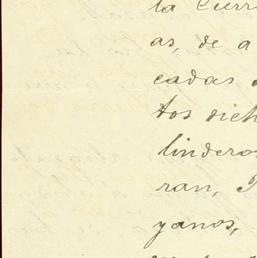 la Curr
as, de a
cadas
tos dich
linderos
ran,
yanos,